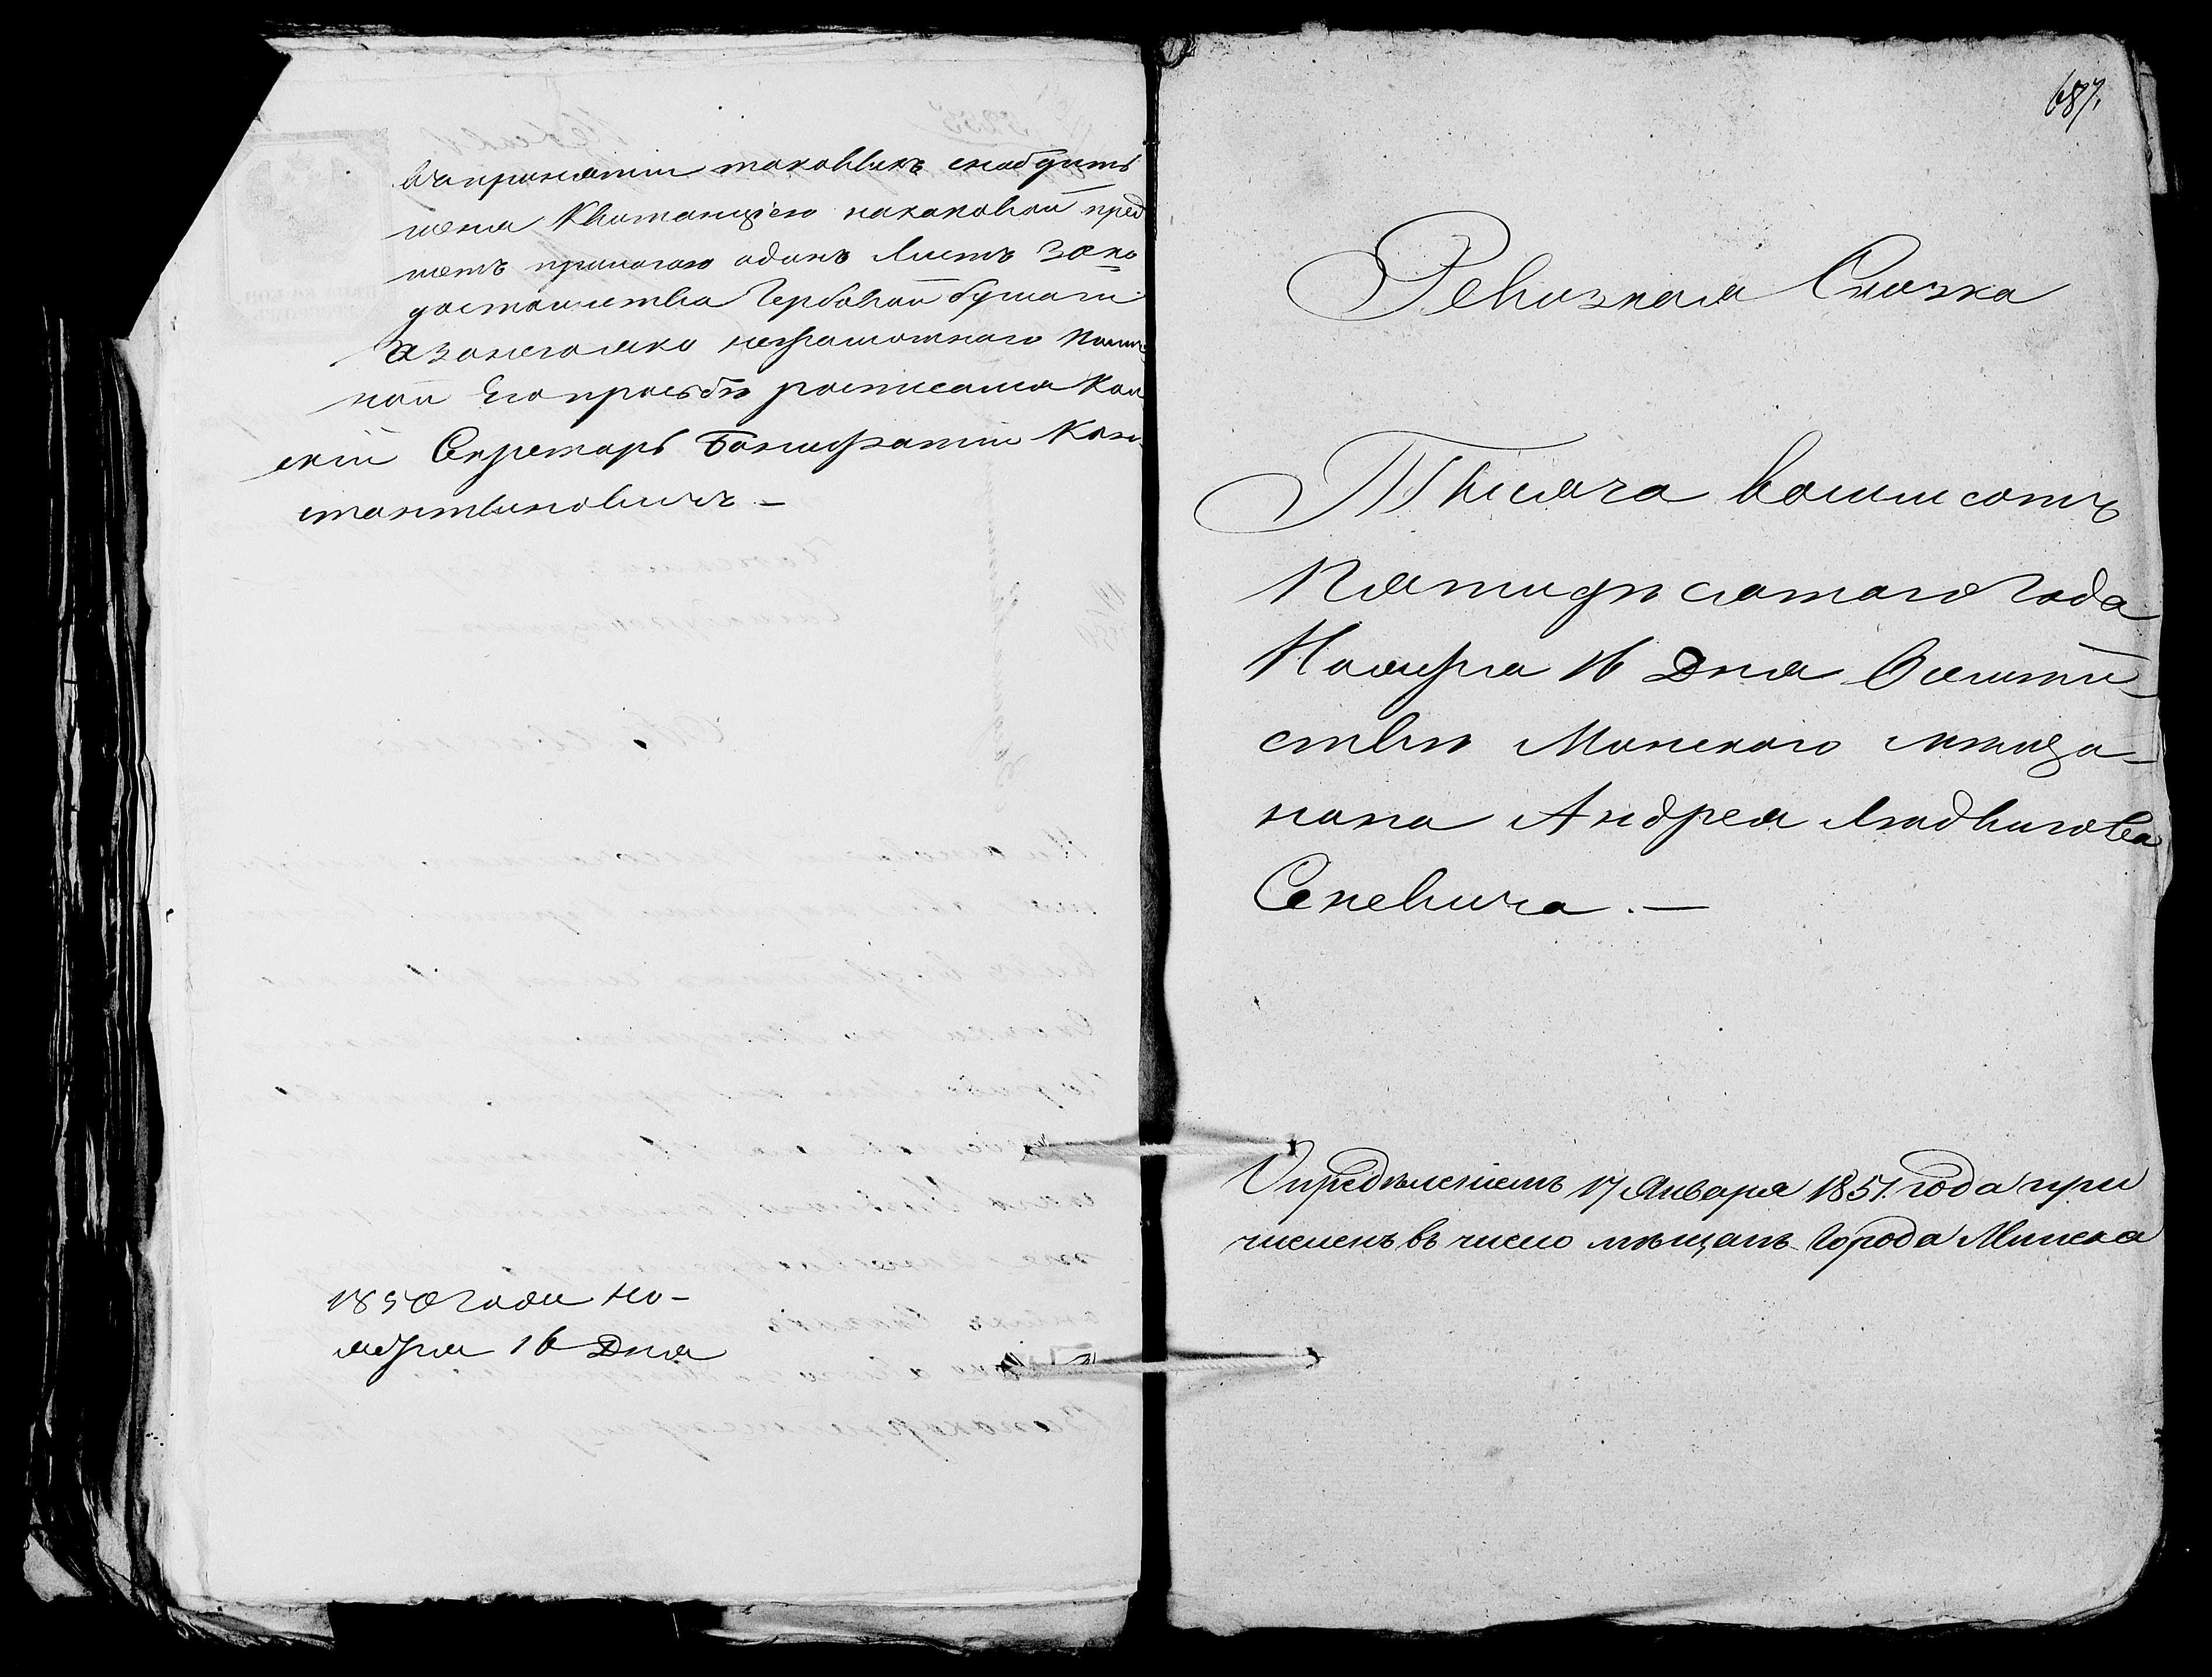 въ принятіи таковыхъ снабдить
меня Квитанціею на каковой пред
метъ прилагаю одинъ листъ 30 ко
достоинства Гербовой бумаги
А за него яко неграмотнаго
ной Его прозьбѣ росписался Кол
скій Секретарь Бонифатій Кон
стантиновичъ —
1850 года Но-
ября 16 Дня
687.
Ревизкая Сказка
Тысяча восимсотъ
Пятидѣсятаго Года
Ноября 16 Дня О семей-
ствѣ Минского мѣща-
нина Андрея Людвигова
Сеневича. —
Опредѣленіемъ 17 Января 1851. года при
численъ въ число мѣщанъ Города Минска